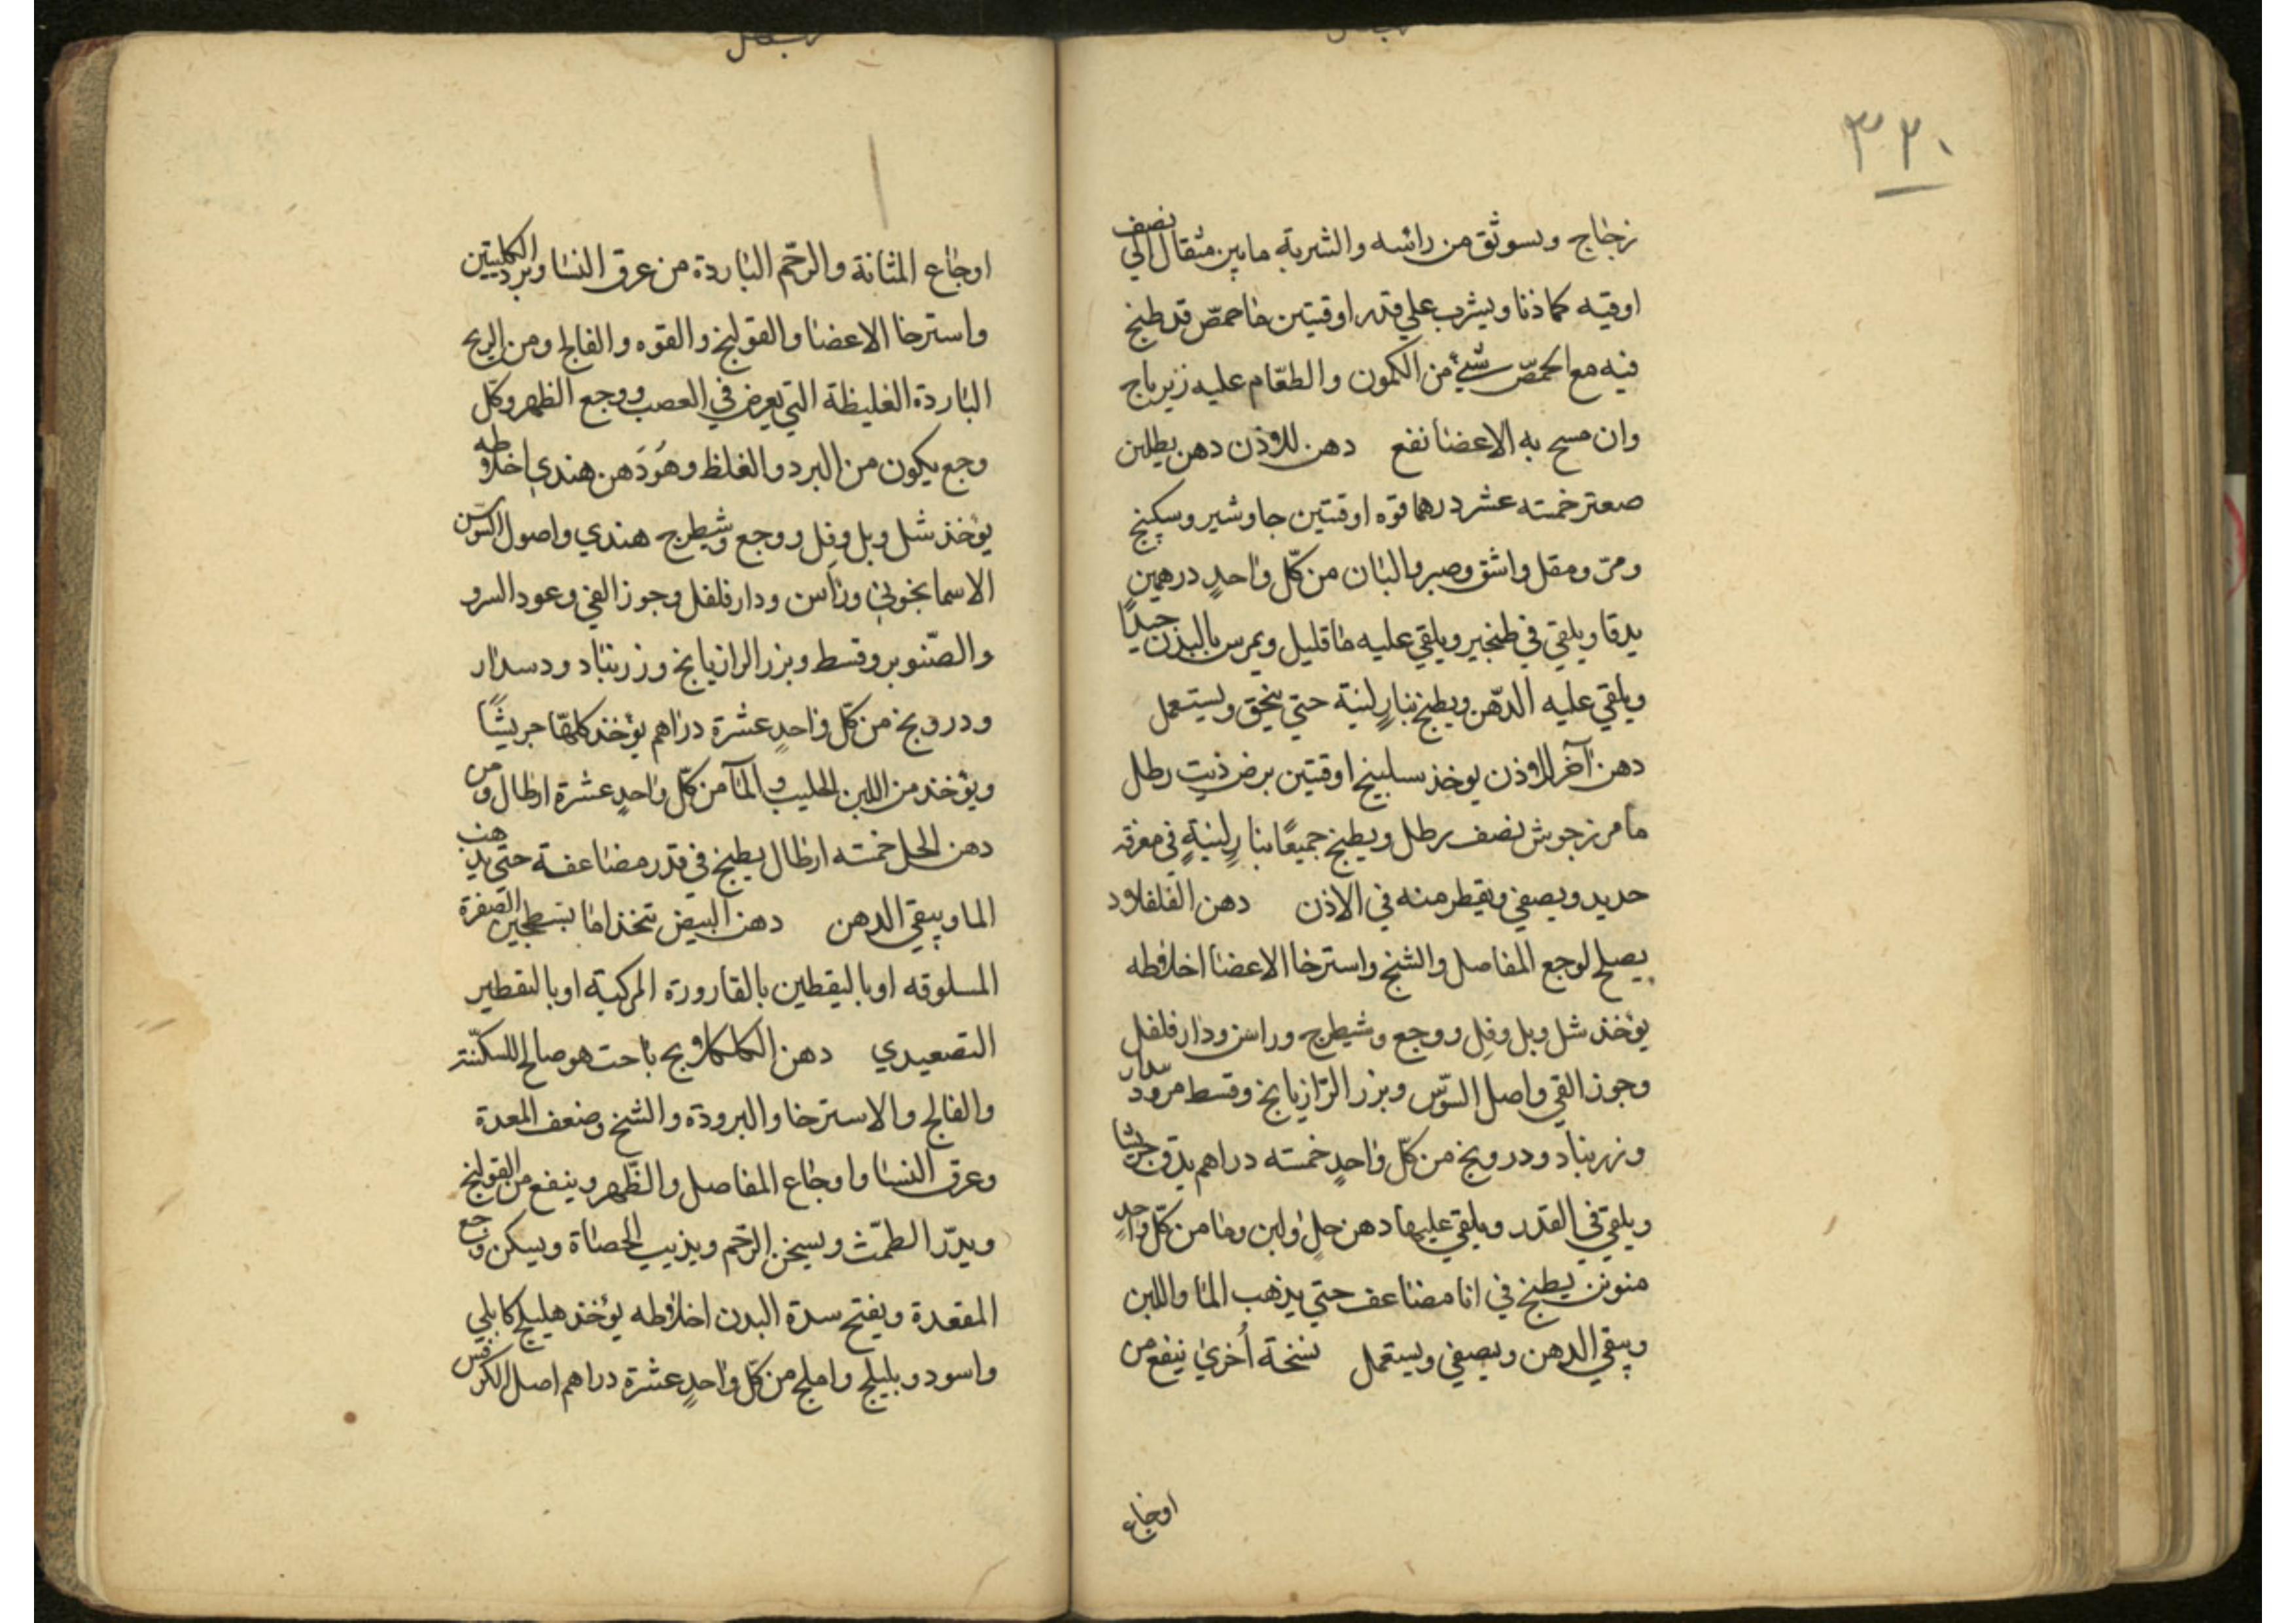 ٣٢٠
زجاج ويسوثق من رائسه والشربة مابين مثقال الي نصف
اوقيه كماذنا ويشرب علي قدر اوقيتين ما حمصّ قد طبخ
فيه مع الحمصّ شيئ من الكمون والطعّام عليه زيرباج
وان مسح به الاعضا نفع دهن للاوذن دهن يطلبن
صعتر خمسته عشر درهما قوّه اوقتين جاوشير وسكبنج
ومرّ ومقل واشق وصبر والبان من كلّ واحدٍ درهمين
يدقا ويلقي في طنجير ويلقي عليه ما قليل ويمرس باليدن جيدًا
ويلقي عليه الدّهن ويطبخ بنارٍ لينة حتي يخق ويستعمل
دهن آخر للاوذن يوخذ سلبيخ اوقتين برض ذيت رطل
ما مرزجوش نصف رطل ويطبخ جميعًا بنارٍ لينةٍ في مغرفه
حديد ويصفي ويقطر منه في الاذن دهن الفلفلاود
يصلح لوجع المفاصل والشنج واسترخا الاعضا اخلاطه
يؤخذ شل وبل وفل ووجع وشيطرج وراسن ودار فلفل
وجوز القي واصل السوّس وبزر الرّازيانج وقسط مر ودسدار
وزرنباد ودرونج من كلّ واحدٍ خمسته دراهم يدق جريشا
ويلقي في القدر ويلقي عليها دهن حل ولبن وما من كلّ واحدٍ
منوين يطبخ في انا مضاعف حتي يذهب الما واللبن
ويبقي الدهن ويصفي ويستعمل نسخة أخري ينفع من
اوجاع
اوجاع المثانة والرحّم الباردة من عرق النسا وبرد الكليتين
واسترخا الاعضا والقولنج والقوه والفالج ومن الريح
الباردة الغليظة التي يعرض في العصب ووجع الظهر وكلّ
وجع يكون من البرد والغلظ وهوَ دَهن هندي اخلاوطه
يؤخذ شل وبل وفل ووجع وشيطرج هندي واصول السوّسن
الاسمانجوني وراسن ودار فلفل وجوز القي وعود السرو
والصّنوبر وقسط وبزر الرازيانج وزرنباد ودسدار
ودرونج من كلّ واحدٍ عشرة دراهم يؤخذ كلهّا جريشًا
ويؤخذ من اللبن الحليب والمآ من كلّ واحدٍ عشرة ارطال ومن
دهن الحل خمسته ارطال يطبخ في قدر مضاعفة حتي يذهب
الما ويبقي الدهن دهن البيض تتخذ اما بتسطجين الصفرة
المسلوقه اوباليقطين بالقارورة المركبة اوبالتقطير
التصعيدي دهن الكلكلاونج باحت هو صالح للسكّتة
والفالج والاسترخا والبرودة والشنج وضعف المعدة
وعرق النسا واوجاع المفاصل والظّهر وينفع من القولنج
ويدرّ الطمّث ويسخن الرحّم ويذيب الحصاة ويسكن وجع
المقعدة ويفتح سدة البدن اخلاطه يؤخذ هليلج كابلي
واسود وبليلج واملج من كلّ واحدٍ عشرة دراهم اصل الكرفس